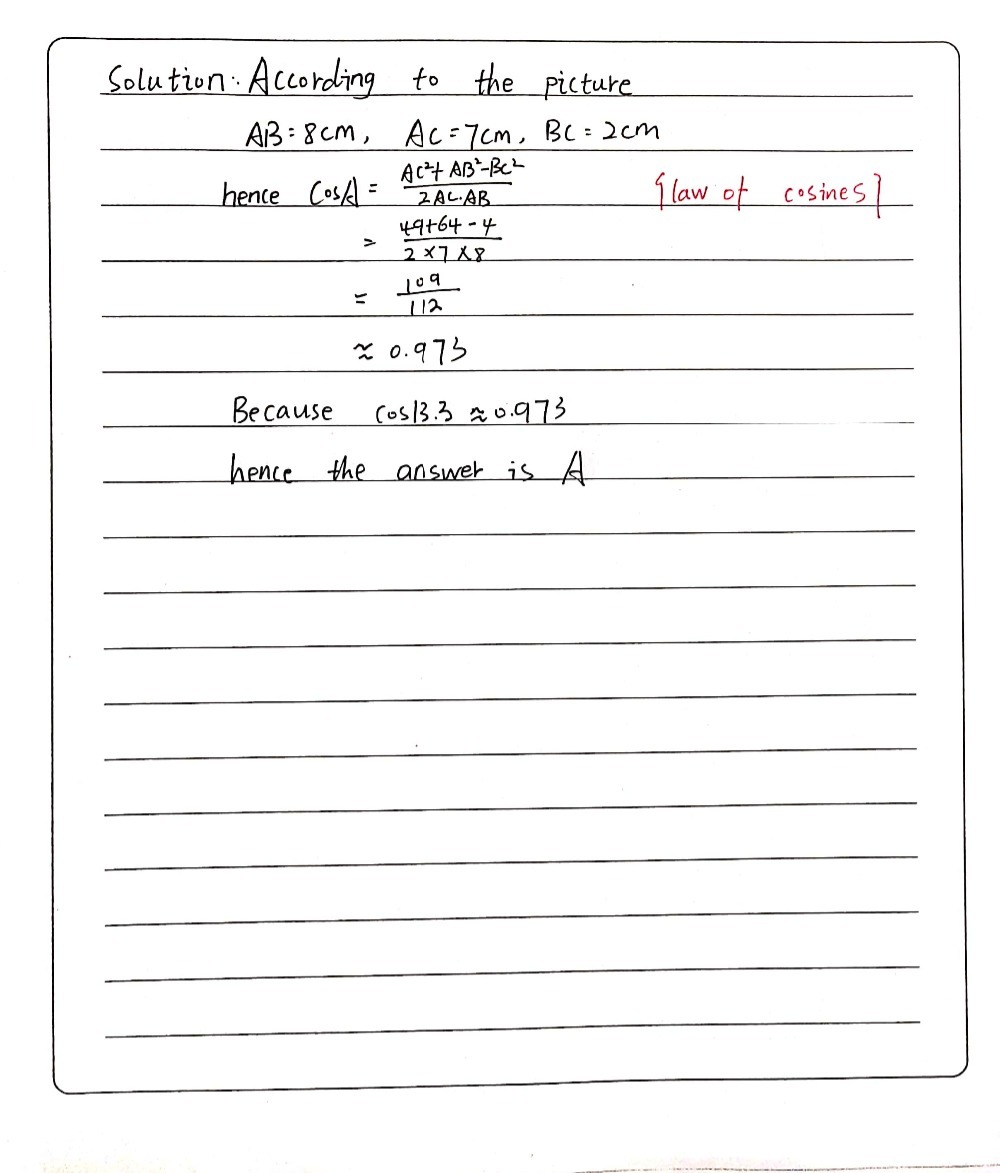 Solution: According to the picture
AB=8cm, AC=7cm, BC=2cm
hence CosA = (AC²+AB²-BC²)/(2AC·AB) {law of cosines}
= (49+64-4)/(2×7×8)
= 109/112
≈ 0.973
Because cos13.3 ≈0.973
hence the answer is A